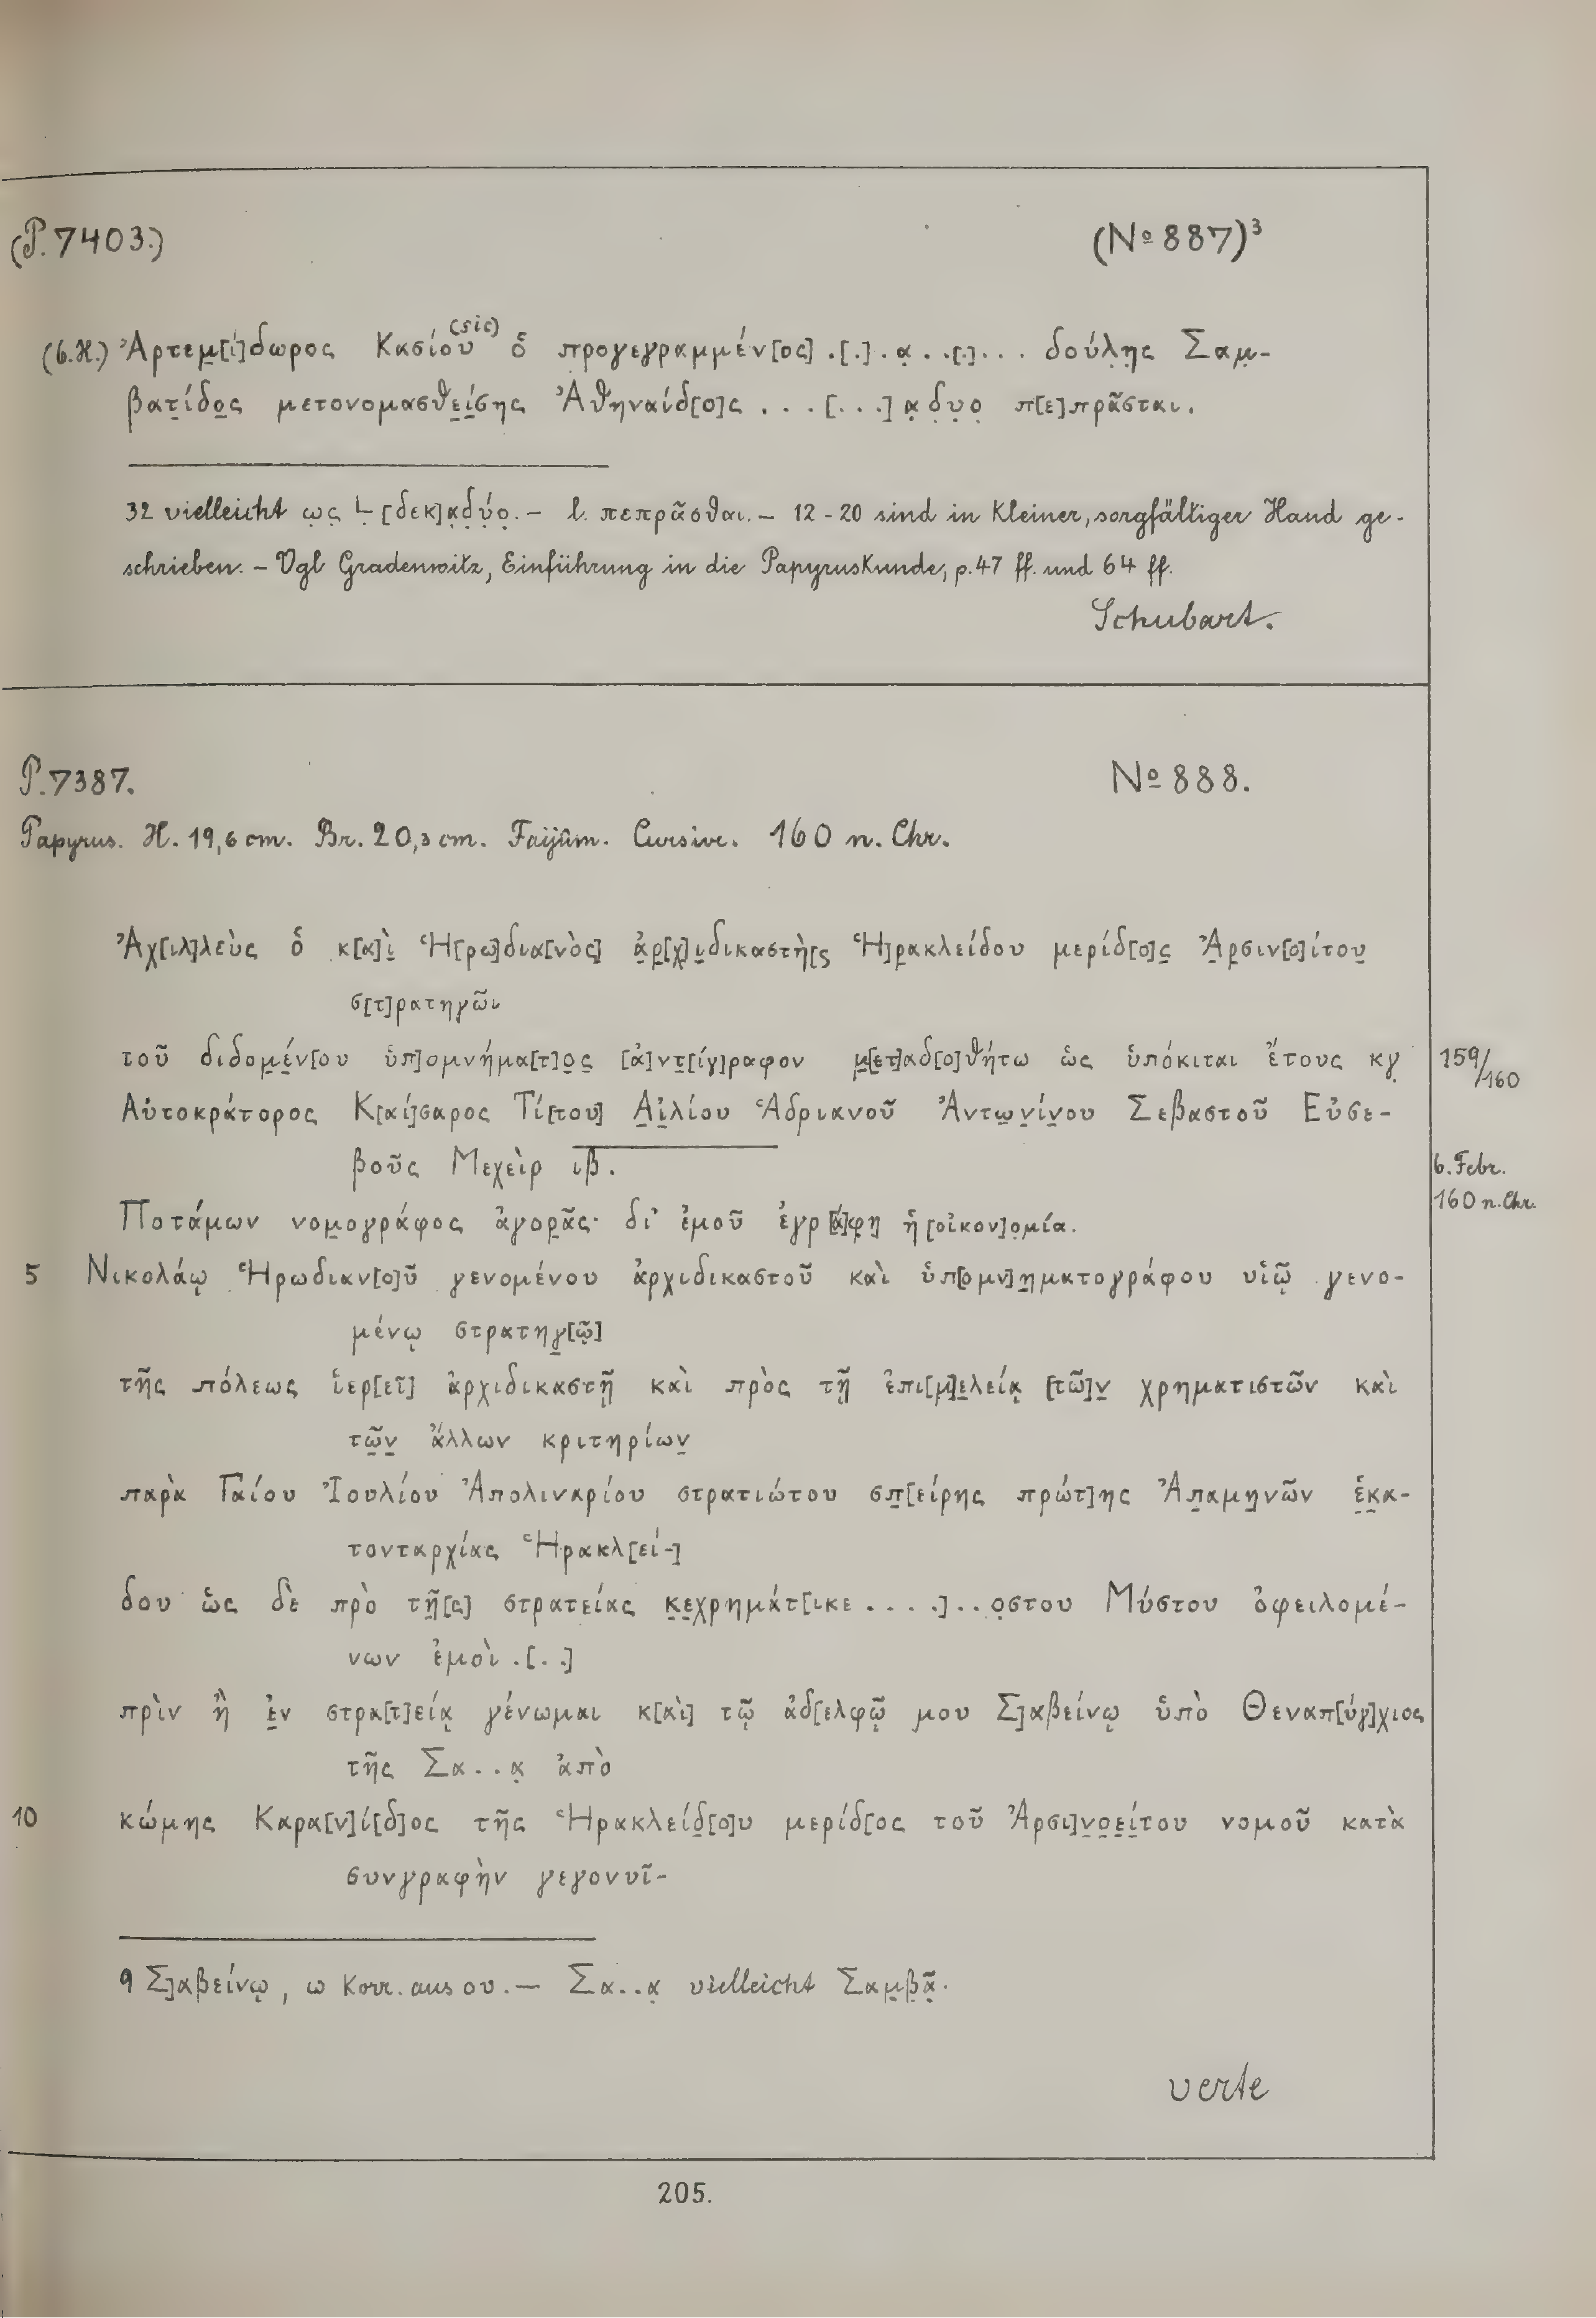 (P. 7403.) (Nº 887)³
(6.H.) Ἀρτεμ̣[ί]δωρος Κασίου (sic) ὁ προγεγραμμέν[ος] .[.].α̣..[.]... δούλ̣η̣ς Σαμ̣-
βατ̣ίδο̣ς μετονομασθε̣ί̣σης Ἀθηναίδ[ο]ς ...[...]α̣δ̣υ̣ο̣ π[ε]πρᾶσται.
32 vielleicht ω̣ς̣ Ḷ [δεκ]α̣δ̣ύ̣ο̣. – l. πεπρᾶσθαι. – 12-20 sind in kleiner, sorgfältiger Hand ge-
schrieben. – Vgl Gradenwitz, Einführung in die Papyruskunde, p. 47 ff. und 64 ff.
Schubart.
P. 7387. Nº 888.
Papyrus. H. 19,6 cm. Br. 20,3 cm. Faijûm. Cursive. 160 n. Chr.
Ἀχ[ιλ]λεὺς ὁ κ[α]ὶ̣ Ἡ[ρω]δια[νὸς] ἀ̣ρ̣[χ]ι̣δικαστὴ[ς Ἡ]ρ̣ακλείδου μερίδ[ο]ς̣ Ἀ̣ρ̣σιν[ο]ίτου̣
σ[τ]ρατηγῶι
τοῦ διδομ̣έ̣ν[ου ὑπ]ομνήμα[τ]ο̣ς̣ [ἀ]ντ̣[ίγ]ραφον μ̣[ετ]αδ[ο]θήτω ὡς ὑπόκιται ἔτους κγ̣ 159/160
Αὐτοκράτορος Κ[αί]σαρος Τί[του] Α̣ἰ̣λίου Ἁδριανοῦ Ἀντω̣ν̣ί̣νου Σεβαστοῦ Εὐσε-
βοῦς Μεχεὶρ ιβ. 6. Febr.
160 n. Chr.
Ποτάμων νομ̣ογράφος ἀγορ̣ᾶς· δι' ἐμοῦ ἐγρ[ά]φ̣η̣ ἡ [οἰκον]ο̣μία.
5 Νικολάῳ Ἡρωδιαν[ο]ῦ γενομένου ἀρχιδικαστοῦ καὶ ὑπ[ομν]η̣ματογράφου υἱῷ γενο-
μένῳ στρατηγ̣[ῷ]
τῆς πόλεως ἱερ[εῖ] ἀρχιδικαστῇ καὶ πρὸς τῇ ἐπι[μ]ε̣λείᾳ [τῶ]ν̣ χρηματιστῶν καὶ
τῶ̣ν̣ ἄλλων κριτηρίων̣
παρὰ Γαίου Ἰουλίου Ἀπολιναρίου στρατιώτου σπ̣[είρης πρώτ]ης Ἀπ̣αμη̣νῶν ἑ̣κ̣α-
τονταρχίας Ἡρακλ[εί-]
δου ὡς δὲ πρὸ τῆ̣[ς] στρατείας κ̣ε̣χρημάτ[ικε ....]..ο̣στου Μύστου ὀφειλομέ-
νων ἐμοὶ .[..]
πρὶν ἢ ἐ̣ν στρα[τ]είᾳ γένωμαι κ[αὶ] τῷ ἀδ[ελφῷ μου Σ]αβείνῳ ὑπὸ Θεναπ[ύγ]χιος
τῆς Σα..α̣ ἀπὸ
10 κώμης Καρα[ν]ί[δ]ος τῆς Ἡρακλείδ̣[ο]υ μερίδ[ος τοῦ Ἀρσι]ν̣ο̣ε̣ί̣του νομοῦ κατὰ
συνγραφὴν γεγονυῖ-
9 Σ]αβείνῳ, ω korr. aus ου. – Σα..α̣ vielleicht Σαμ̣β̣ᾶ̣.
verte
205.